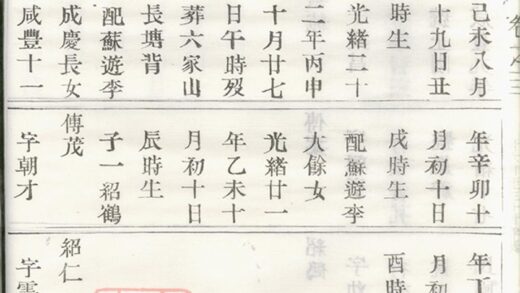 己未八月
十九日丑
時生
光緒二十
二年丙申
十月廿七
日午時歿
葬六家山
長塘背
配蘇遊李
成慶長女
咸豐十一
年辛卯十
月初十日
戌時生
配蘇遊李
大餘女
光緒廿一
年乙未十
月初十日
辰時生
子一紹鶴
傳茂
字朝才
年丁
月初
酉時
紹仁
字